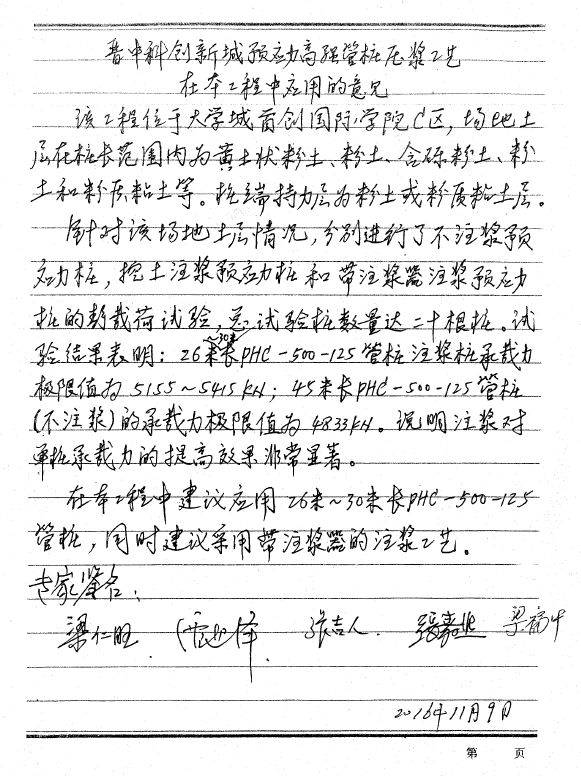 晋中科创新城预应力高强管桩压浆工艺
在本工程中应用的意见
该工程位于大学城首创国际学院C区，场地土
层在桩长范围内为黄土状粉土、粉土、含砾粉土、粉
土和粉质粘土等。桩端持力层为粉土或粉质粘土层。
针对该场地土层情况，分别进行了不注浆预
应力桩，挖土注浆预应力桩和带注浆器注浆预应力
桩的静载荷试验，总试验桩数量达二十根桩。试
~30米
验结果表明：26米长PHC-500-125管桩注浆桩承载力
极限值为5155~5415kN；45米长PHC-500-125管桩
(不注浆)的承载力极限值为4833kN。说明注浆对
单桩承载力的提高效果非常显著。
在本工程中建议应用26米~30米长PHC-500-125
管桩，同时建议采用带注浆器的注浆工艺。
专家签名：
梁仁旺 张吉人.
2016年11月9日
第 页